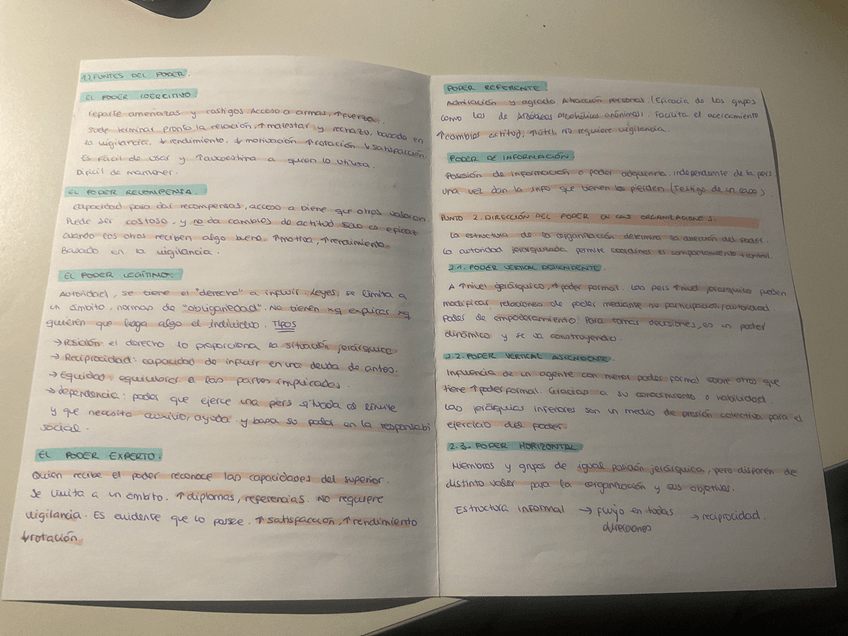 1) FUNTES DEL PODER.
EL PODER COERCITIVO
reparte amenazas y castigos Acceso a armas, ↑fuerza.
Suele terminar pronto la relación, ↑malestar y rechazo, basado en
la vigilancia. ↓rendimiento, ↓motivación ↑rotación ↓satisfacción
Es fácil de usar y a quien lo utiliza.
Difícil de mantener.
EL PODER RECOMPENSA.
capacidad para dar recompensas, acceso a bienes que otros valoran
Puede ser costoso y no da cambios de actitud solo es eficaz
cuando los otros reciben algo bueno ↑motiva, ↑rendimiento.
Basado en la vigilancia.
EL PODER LEGÍTIMO.
Autoridad, se tiene el "derecho" a influir. Leyes, se limita a
un ámbito, normas de "obligariedad". No tienen xq explicar xq
quieren que haga algo el individuo. TIPOS
→ Posición el derecho lo proporciona la situación jerárquica
→ Reciprocidad: capacidad de influir en una deuda de antes.
→ Equidad: equilibrar a las partes implicadas.
→ dependencia: poder que ejerce una pers situada al límite
y que necesita auxilio, ayuda y basa su poder en la responsabi
social.
EL PODER EXPERTO.
Quién recibe el poder reconoce las capacidades del superior.
Se limita a un ámbito. ↑diplomas, referencias. No requiere
vigilancia. Es evidente que lo posee. ↑satisfacción, ↑rendimiento
↓rotación.
PODER REFERENTE
Admiración y agrado Atracción personal (Eficacia de los grupos
como los de alcohólicos anónimos). Facilita el acercamiento
↑cambios actitud, ↑útil no requiere vigilancia.
PODER DE INFORMACIÓN
Posesión de información o poder adquirirla. independiente de la pers
una vez dan la info que tienen lo pierden (Testigo de un caso).
PUNTO 2. DIRECCIÓN DEL PODER EN LAS ORGANIZACIONES.
La estructura de la organización determina la dirección del poder.
La autoridad jerarquizada permite coordinar el comportamiento y control.
2.1. PODER VERTICAL DESCENDENTE.
A ↑nivel jerárquico, ↑poder formal. Las pers ↑nivel jerárquico pueden
modificar relaciones de poder mediante su participación/autoridad.
Poder de empoderamiento: Para tomar decisiones, es un poder
dinámico y se va construyendo.
2.2. PODER VERTICAL ASCENDENTE.
Influencia de un agente con menor poder formal sobre otros que
tiene ↑poder formal. Gracias a su conocimiento o habilidad.
Las jerárquías inferiores son un medio de presión colectiva para el
ejercicio del poder.
2.3. PODER HORIZONTAL
Miembros y grupos de igual posición jerárquica, pero disponen de
distinto valor para la organización y sus objetivos.
Estructura informal → flujo en todas → reciprocidad.
direcciones